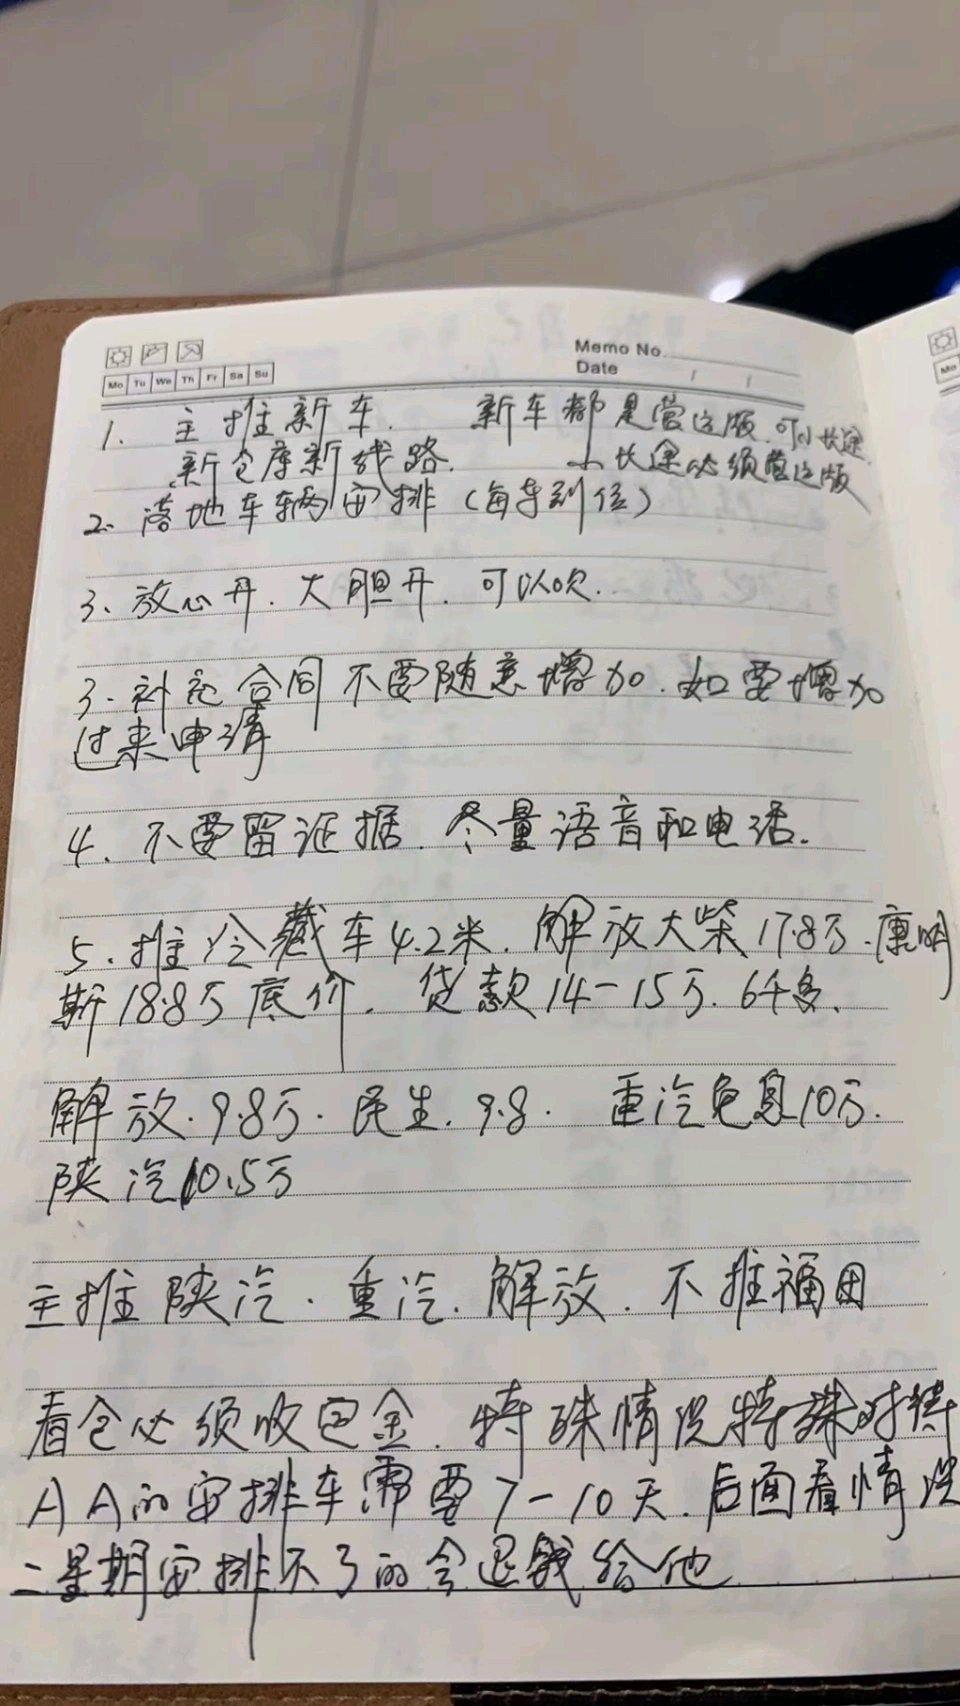 Memo No.
Date / /
Mo Tu We Th Fr Sa Su
1. 主推新车. 新车都是营运版.可小长途.
新仓库新线路. 小长途必须营运版
2. 落地车辆安排(每车到位)
3、放心开.大胆开.可以吹.
3.补充合同不要随意增加.如要增加
过来申请
4.不要留证据.尽量语音和电话.
5.推冷藏车4.2米.解放大柴17.8万.康明
斯18.8万底价. 贷款14-15万.6千多.
解放.9.8万.民生.9.8. 重汽免息10万.
陕汽10.5万
主推陕汽.重汽.解放.不推福田
看仓必须收包金.特殊情况特殊对待
AA的安排车需要7-10天.后面看情况
二星期安排不了的会退钱给他